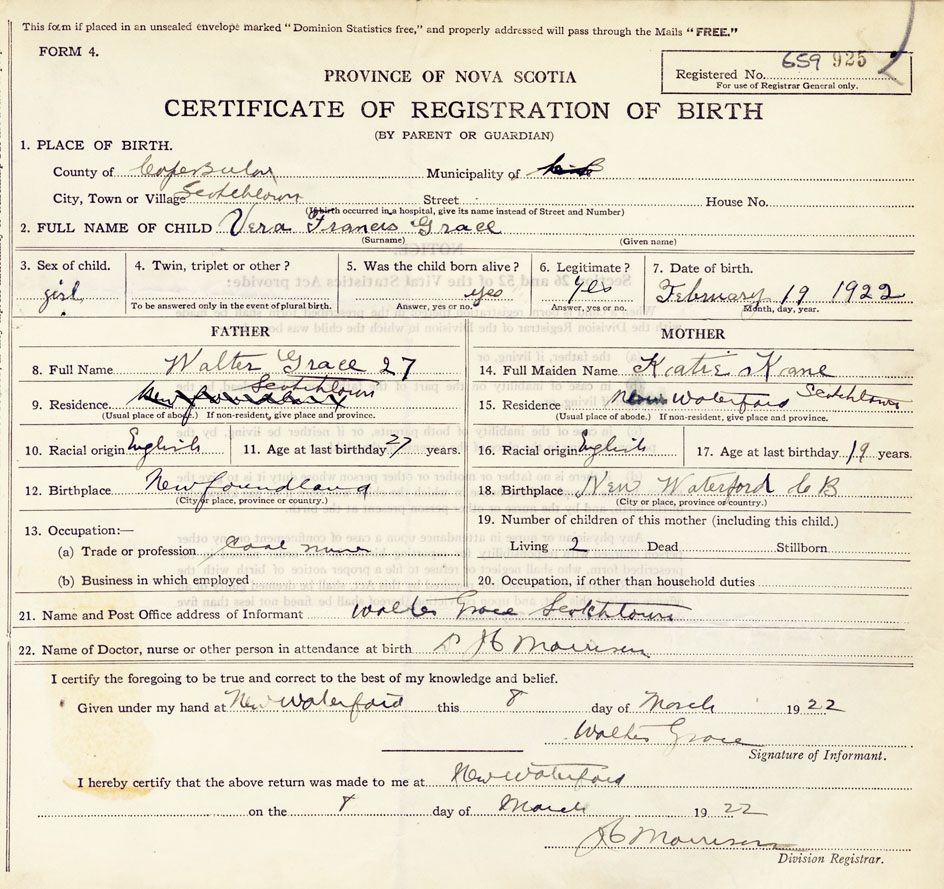 This form if placed in an unsealed envelope marked "Dominion Statistics free," and properly addressed will pass through the Mails "FREE."
FORM 4.
Registered No. 659 925
For use of Registrar General only.
PROVINCE OF NOVA SCOTIA
CERTIFICATE OF REGISTRATION OF BIRTH
(BY PARENT OR GUARDIAN)
1. PLACE OF BIRTH.
County of Cape Breton Municipality of
City, Town or Village Scotchtown Street House No.
(If birth occurred in a hospital, give its name instead of Street and Number)
2. FULL NAME OF CHILD Vera Francis Grace
(Surname) (Given name)
3. Sex of child. 4. Twin, triplet or other? 5. Was the child born alive? 6. Legitimate? 7. Date of birth.
girl yes Yes February 19 1922
To be answered only in the event of plural birth. Answer, yes or no. Answer, yes or no. Month, day, year.
FATHER
8. Full Name Walter Grace 27
9. Residence New Foundland Scotchtown
(Usual place of abode.) If non-resident, give place and province.
10. Racial origin English 11. Age at last birthday 27 years.
12. Birthplace Newfoundland
(City or place, province or country.)
13. Occupation:—
(a) Trade or profession Coal miner
(b) Business in which employed
MOTHER
14. Full Maiden Name Katie Kane
15. Residence New Waterford Scotchtown
(Usual place of abode.) If non-resident, give place and province.
16. Racial origin English 17. Age at last birthday 19 years.
18. Birthplace New Waterford C B
(City or place, province or country.)
19. Number of children of this mother (including this child.)
Living 2 Dead Stillborn
20. Occupation, if other than household duties
21. Name and Post Office address of Informant Walter Grace Scotchtown
22. Name of Doctor, nurse or other person in attendance at birth J H Morrison
I certify the foregoing to be true and correct to the best of my knowledge and belief.
Given under my hand at New Waterford this 8 day of March 1922
Walter Grace
Signature of Informant.
I hereby certify that the above return was made to me at New Waterford
on the 8 day of March 1922
J H Morrison
Division Registrar.